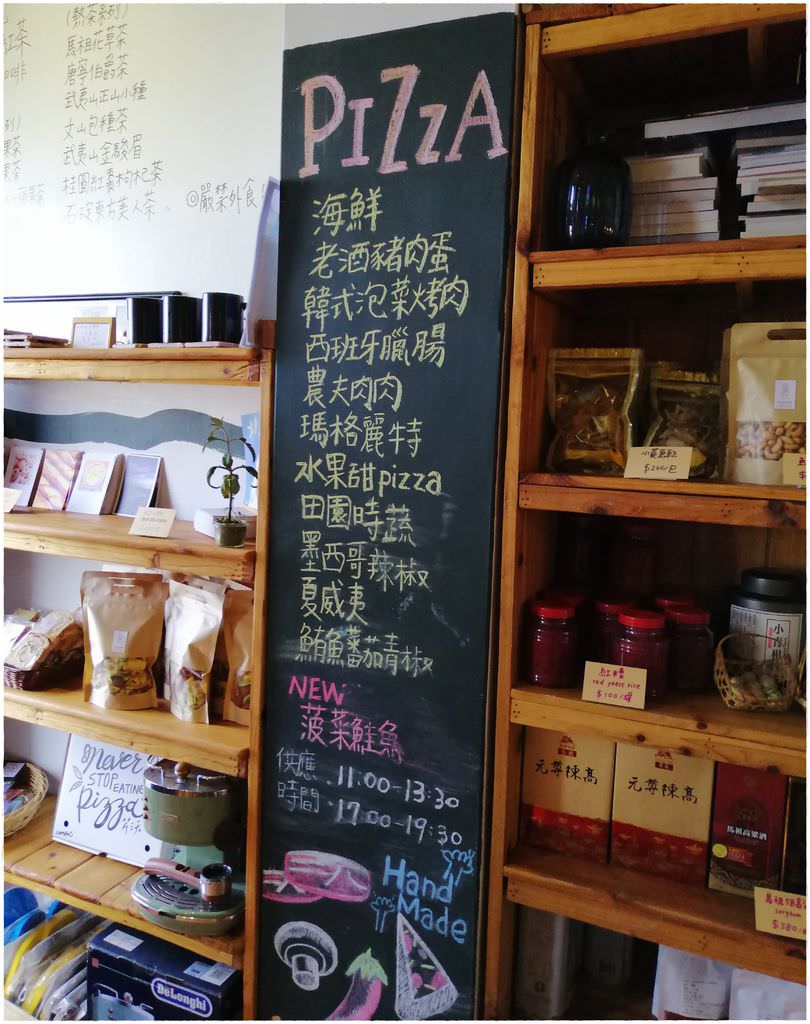 (熱茶系列)
馬祖花草茶
唐寧伯爵茶
武夷山正山小種
文山包種茶
武夷山金駿眉
桂圓紅棗枸杞茶
石碇東方美人茶。
◎嚴禁外食!
紅茶
PiZZA
海鮮
老酒豬肉蛋
韓式泡菜烤肉
西班牙臘腸
農夫肉肉
瑪格麗特
水果甜pizza
田園時蔬
墨西哥辣椒
夏威夷
鮪魚蕃茄青椒
NEW
菠菜鮭魚
供應
時間
11:00-13:30
17:00-19:30
Hand
Made
never
STOP
EATING
pizza
DeLonghi
$200/包
紅糟
red yeast rice
$500/罐
元尊陳高
元尊陳高
馬祖高粱酒
sorghum
$580